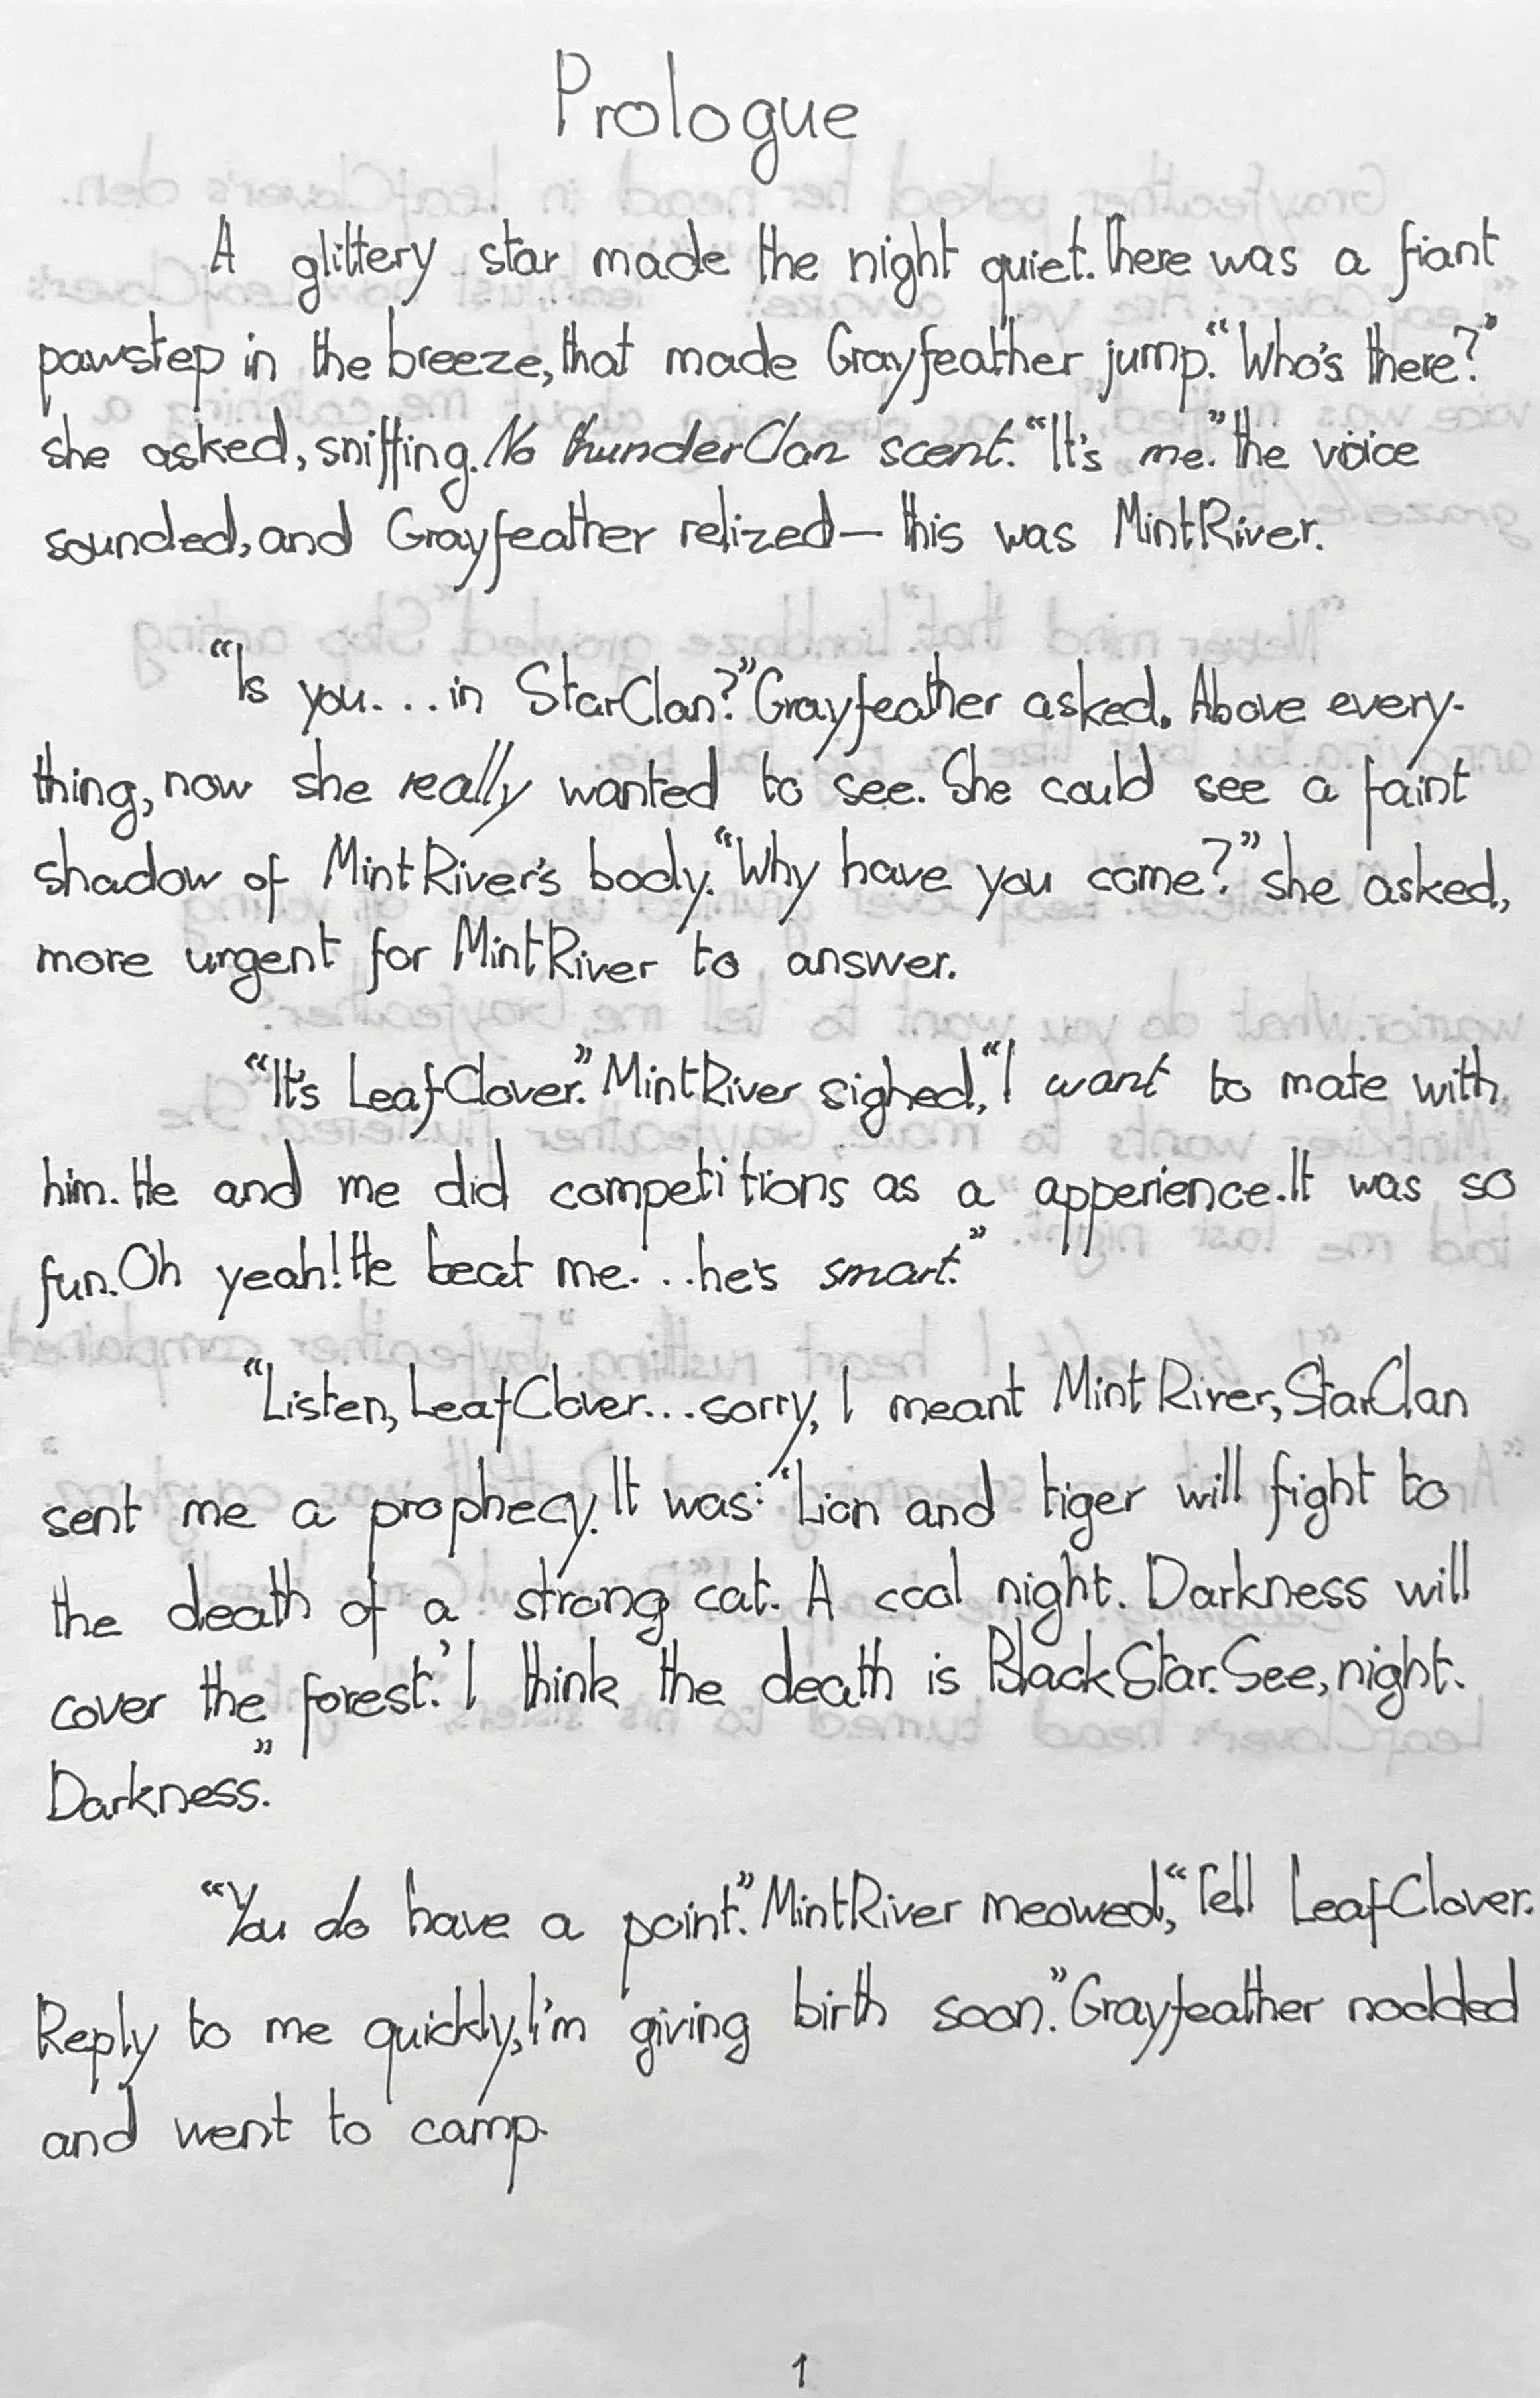 Prologue
A glittery star made the night quiet. There was a fiant
pawstep in the breeze, that made Grayfeather jump. “Who's there?”
she asked, sniffing. No thunderClan scent. “It's me.” the voice
sounded, and Grayfeather relized— this was MintRiver.
“Is you... in StarClan?” Grayfeather asked. Above every-
thing, now she really wanted to see. She could see a faint
shadow of MintRiver's body. “Why have you come?” she asked,
more urgent for MintRiver to answer.
“It's LeafClover.” MintRiver sighed, “I want to mate with
him. He and me did competitions as a apperience. It was so
fun. Oh yeah! He beat me... he's smart.”
“Listen, LeafClover... sorry, I meant MintRiver, StarClan
sent me a prophecy. It was: ‘Lion and tiger will fight to
the death of a strong cat. A cool night. Darkness will
cover the forest.’ I think the death is BlackStar. See, night.
Darkness.”
“You do have a point.” MintRiver meowed, “Tell LeafClover.
Reply to me quickly, I'm giving birth soon.” Grayfeather nodded
and went to camp.
1